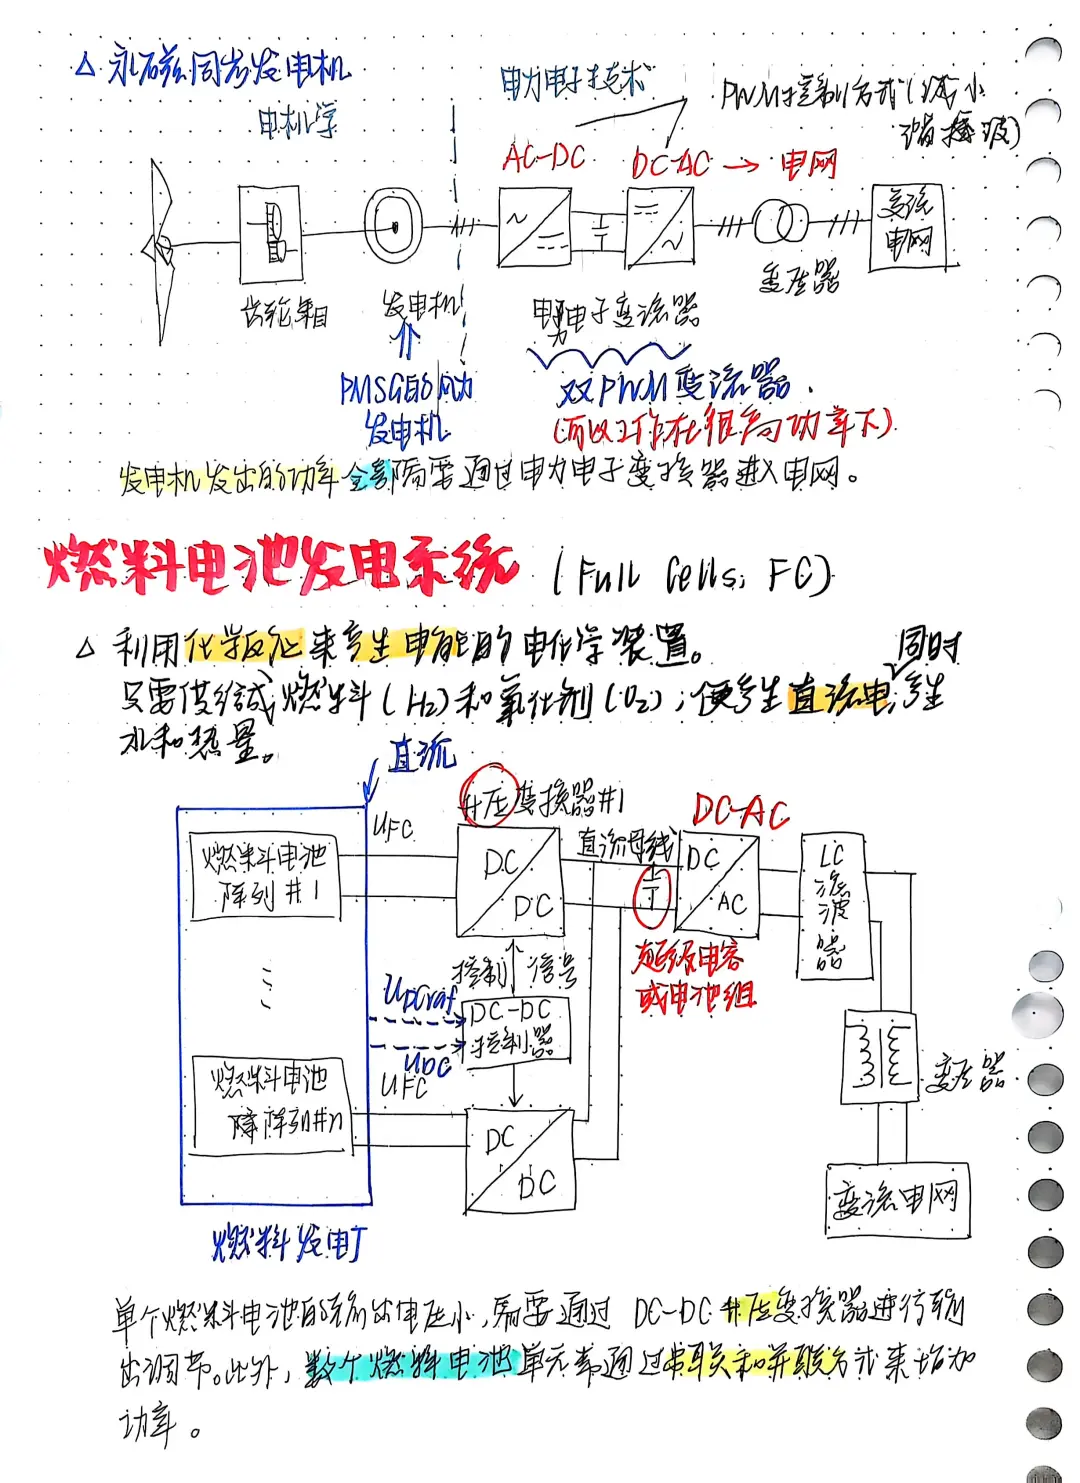 △ 永磁同步发电机
电机学
电力电子技术
PWM控制方式(减小
谐波)
AC-DC
DC-AC → 电网
交流
电网
齿轮箱
发电机
电力电子变流器
变压器
PMSG的风力
发电机
双PWM变流器.
(可以工作在很高功率下)
发电机发出的功率全部需要通过电力电子变换器进入电网。
燃料电池发电系统 (Full Cells, FC)
△ 利用化学反应来产生电能的电化学装置。
同时
只要供给燃料(H2)和氧化剂(O2),便产生直流电,产生
水和热量。
直流
升压变换器#1
DC-AC
UFC
直流母线
燃料电池
阵列#1
DC
DC
DC
AC
LC
滤
波
器
超级电容
或电池组
控制信号
UDCref
DC-DC
控制器
UDC
UFC
变压器
燃料电池
阵列#n
DC
DC
交流电网
燃料发电厂
单个燃料电池的输出电压小,需要通过DC-DC升压变换器进行输
出调节。此外,数个燃料电池单元需通过串联和并联方式来增加
功率。